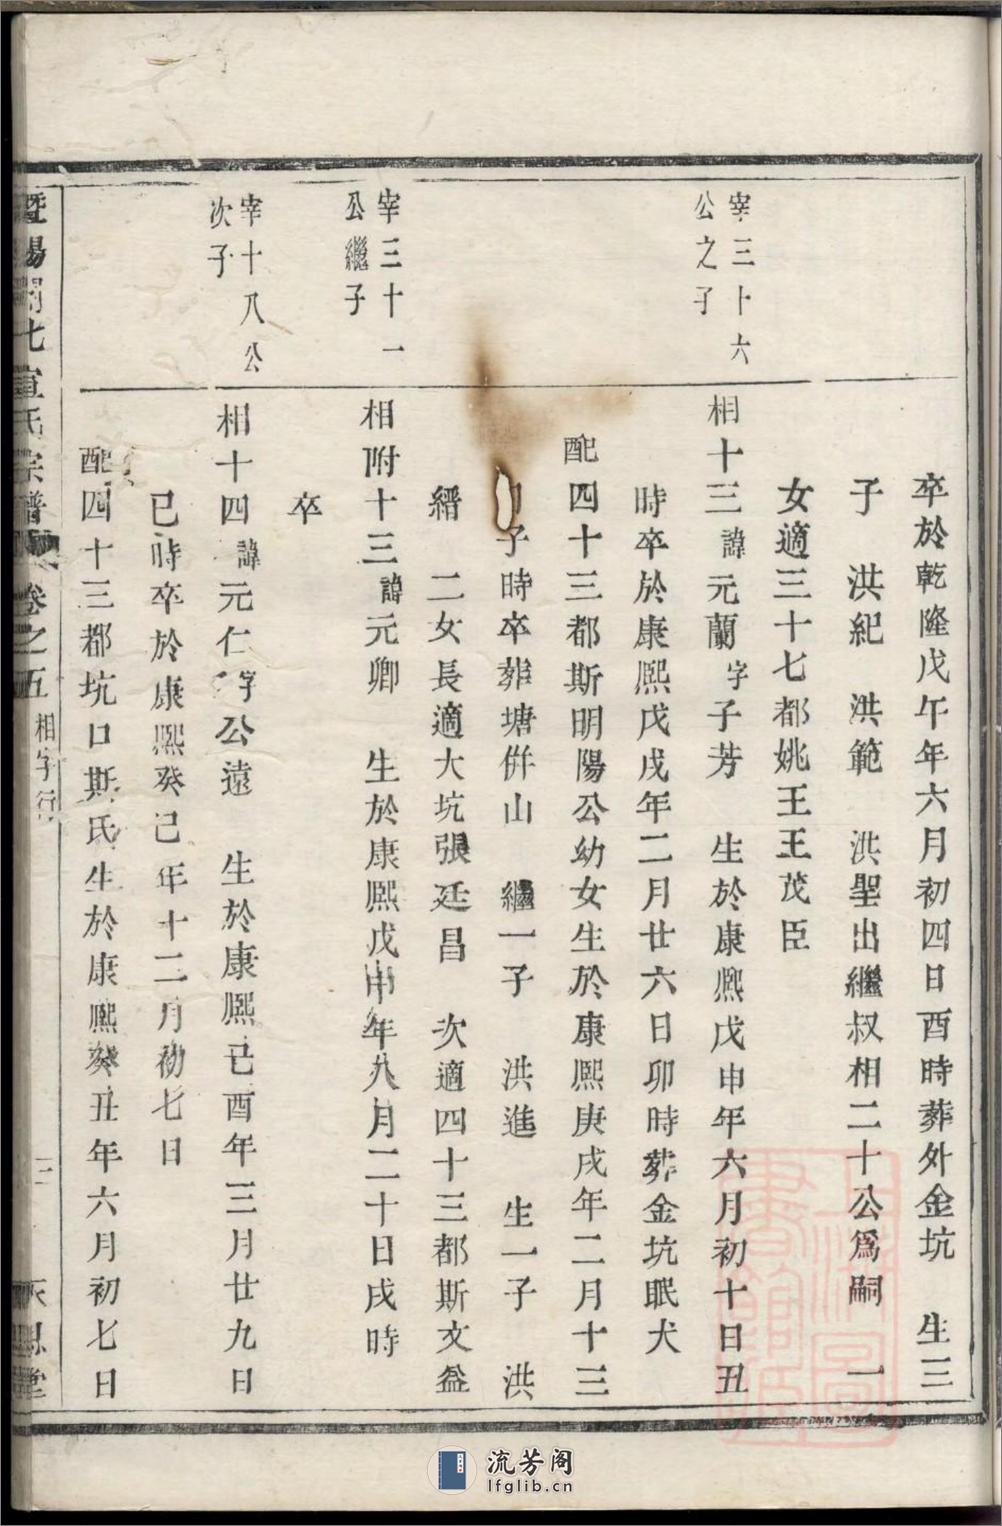 卒於乾隆戊午年六月初四日酉時葬外金坑　生三
子　洪紀　洪範　洪聖出繼叔相二十公爲嗣　一
女適三十七都姚王王茂臣
宰三十六
公之子
相十三諱元蘭字子芳　生於康熙戊申年六月初十日丑
時卒於康熙戊戌年二月廿六日卯時葬金坑眠犬
配四十三都斯明陽公幼女生於康熙庚戌年二月十三
日子時卒葬塘併山　繼一子　洪進　生一子　洪
縉　二女長適大坑張廷昌　次適四十三都斯文益
宰三十一
公繼子
相附十三諱元卿　生於康熙戊申年八月二十日戌時
卒
宰十八公
次子
相十四諱元仁字公遠　生於康熙己酉年三月廿九日
巳時卒於康熙癸巳年十二月初七日
配四十三都坑口斯氏生於康熙癸丑年六月初七日
暨陽開七宣氏宗譜
卷之五
相字行
三
思堂
上海圖書館藏
流芳阁
lfglib.cn